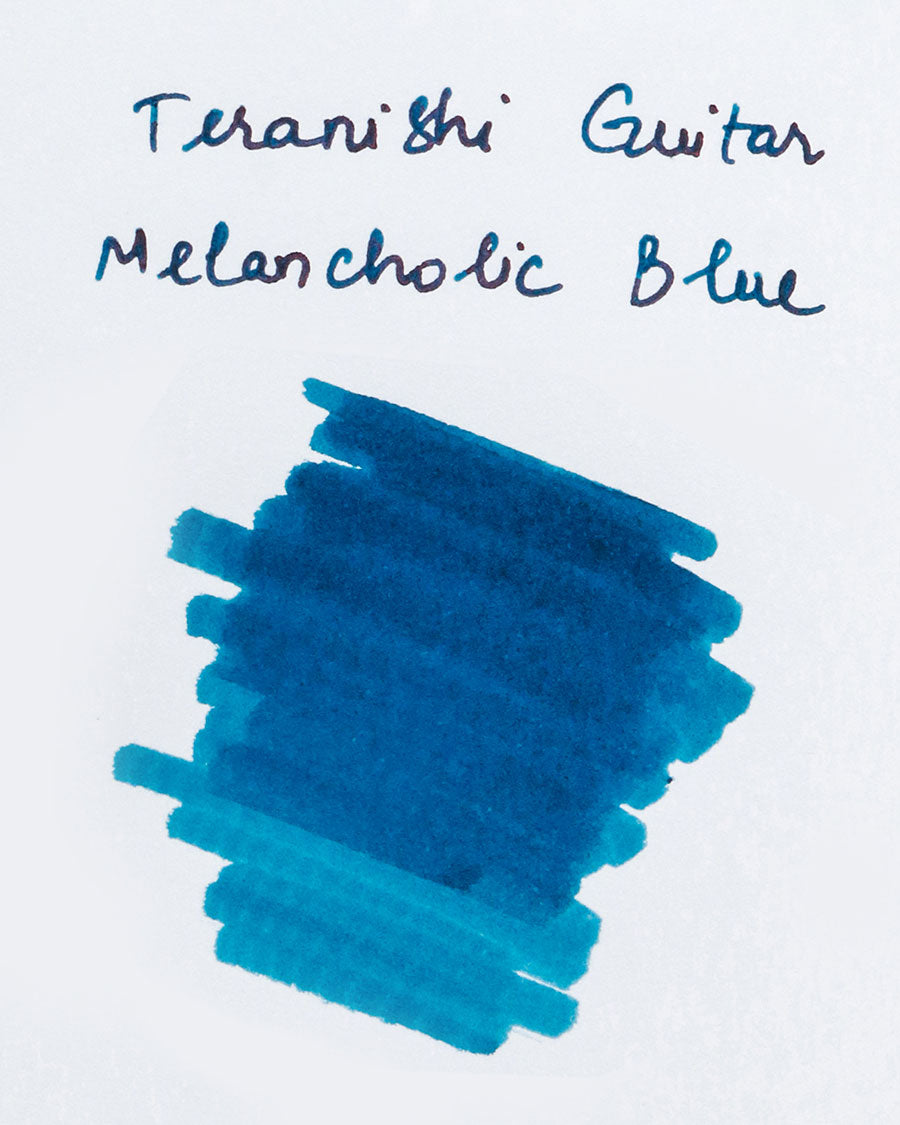 Teranishi Guitar
Melancholic Blue